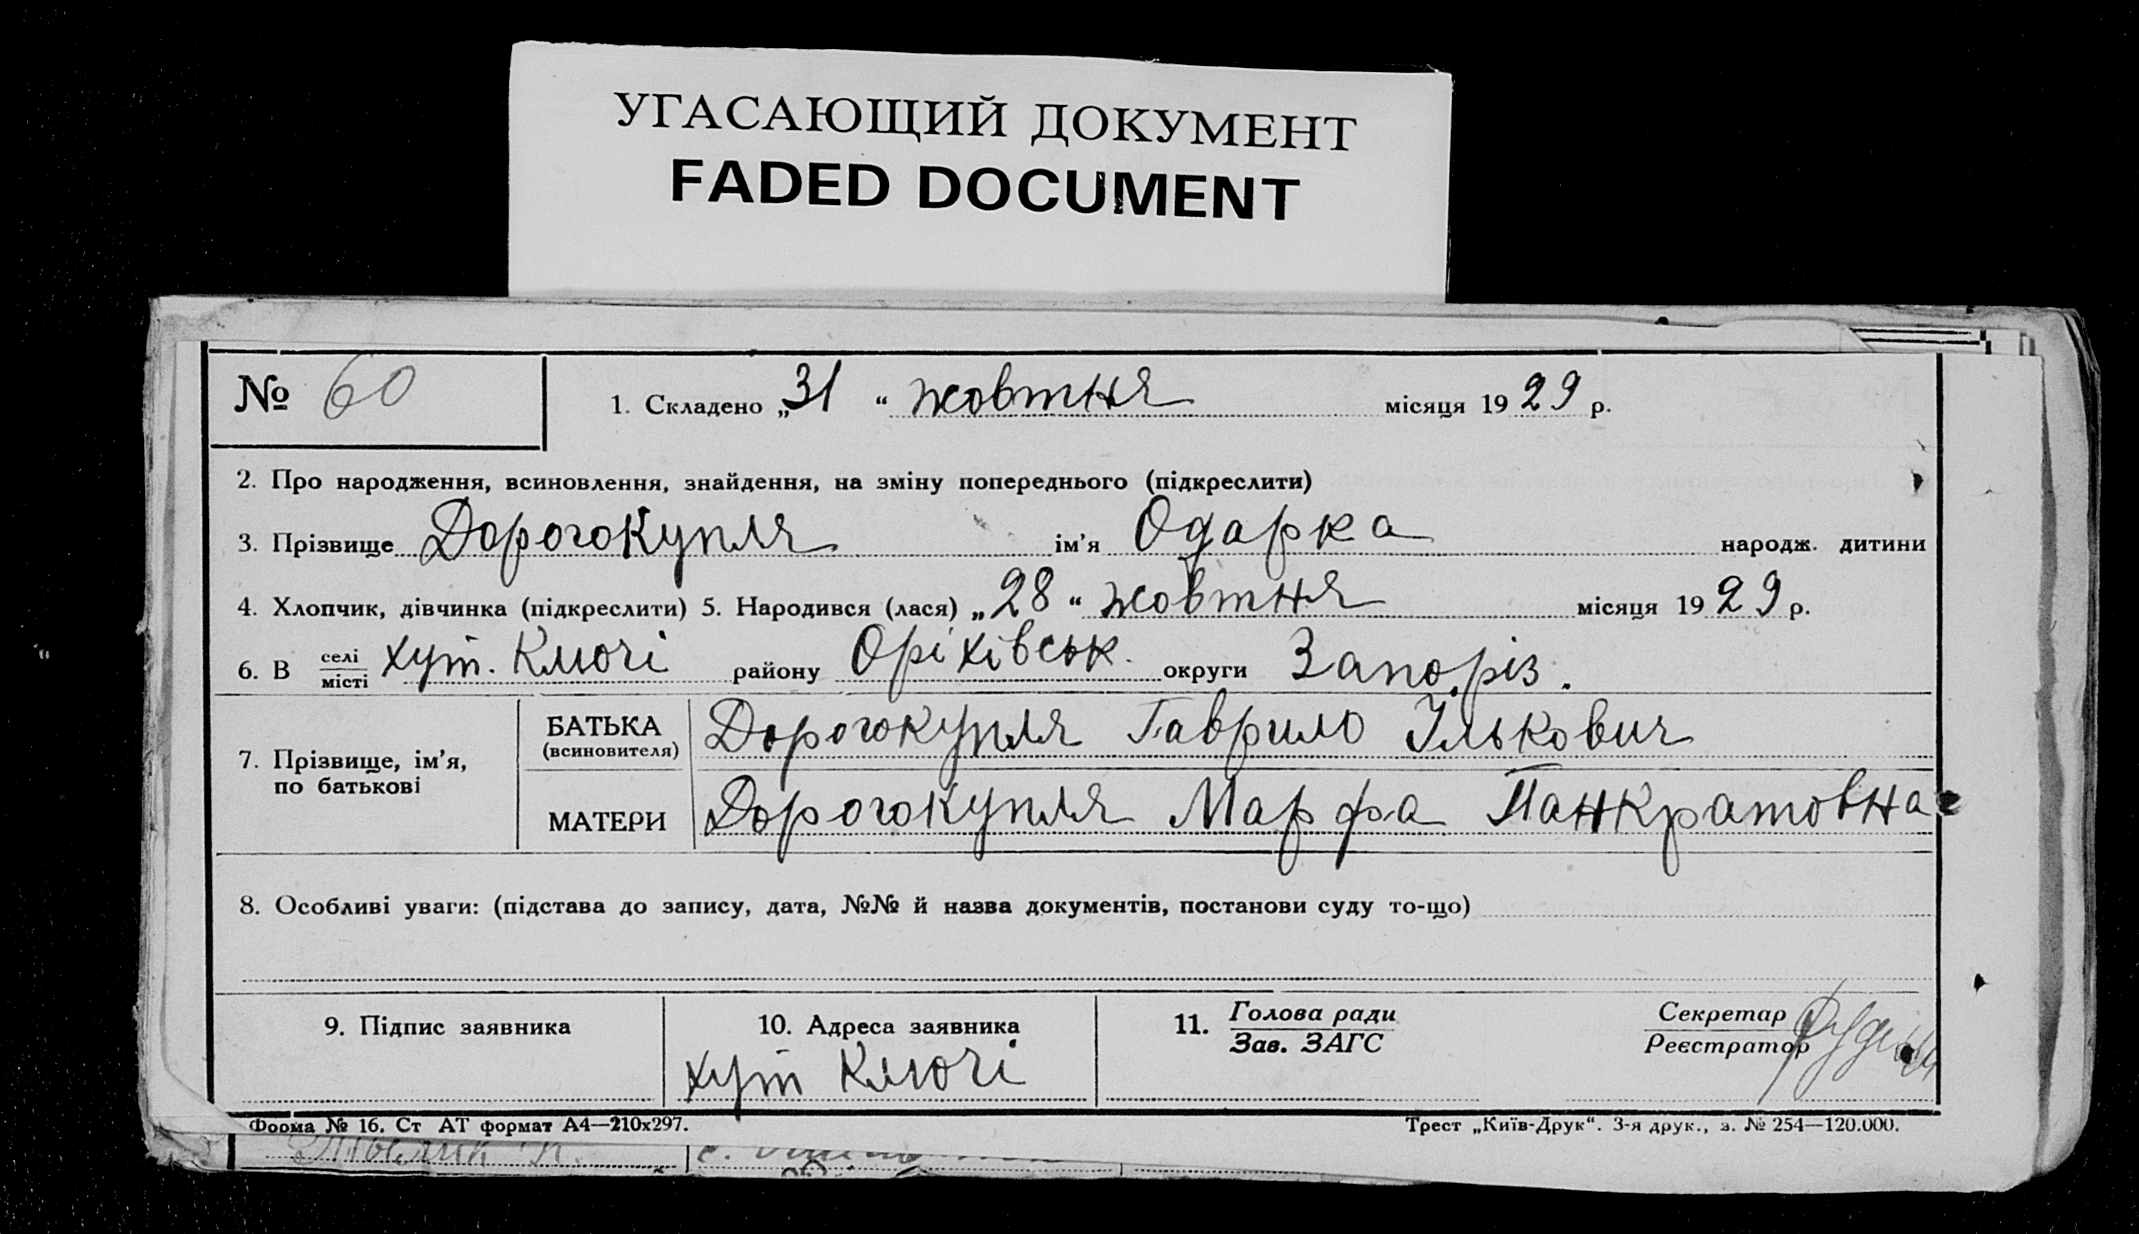 УГАСАЮЩИЙ ДОКУМЕНТ
FADED DOCUMENT
№ 60
1. Складено „31“ жовтня місяця 1929 р.
2. Про народження, всиновлення, знайдення, на зміну попереднього (підкреслити)
3. Прізвище Дорогокупля ім'я Одарка народж. дитини
4. Хлопчик, дівчинка (підкреслити) 5. Народився (лася) „28“ жовтня місяця 1929 р.
6. В селі/місті хут. Ключі району Оріхівськ. округи Запоріз.
7. Прізвище, ім'я, по батькові
БАТЬКА (всиновителя) Дорогокупля Гаврило Ількович
МАТЕРИ Дорогокупля Марфа Панкратовна
8. Особливі уваги: (підстава до запису, дата, №№ й назва документів, постанови суду то-що)
9. Підпис заявника
10. Адреса заявника
хут Ключі
11. Голова ради
Зав. ЗАГС
Секретар
Реєстратор
Форма № 16. Ст АТ формат А4—210х297.
Трест „Київ-Друк“. 3-я друк., з. № 254—120.000.